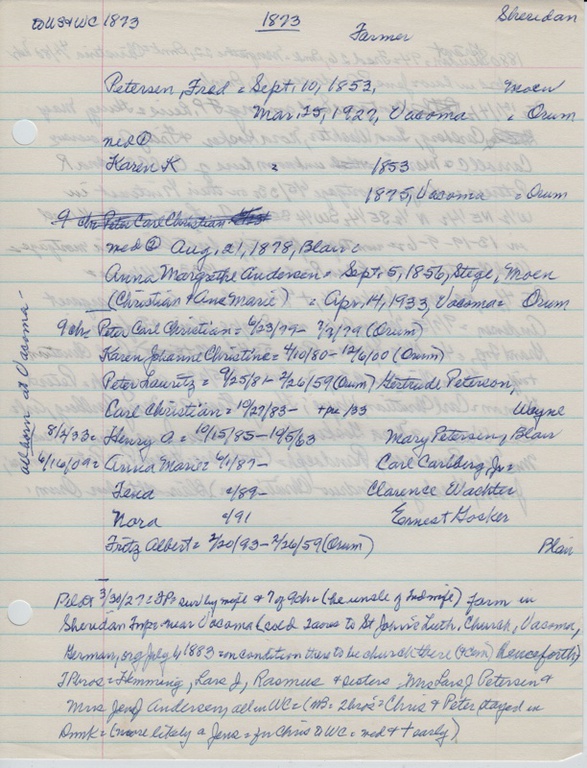 to US & WC 1873 1873 Sheridan
Farmer
Petersen, Fred = Sept. 10, 1853, Moen
Mar. 25, 1927, Vacoma = Orum
med ①
Karen K = 1853
1875, Vacoma = Orum
9 chn Peter Carl Christian
med ② Aug. 21, 1878, Blair =
Anna Margrethe Andersen = Sept. 5, 1856, Stege, Moen
(Christian & Ane Marie) = Apr. 14, 1933, Vacoma = Orum
9 ch = Peter Carl Christian = 6/23/79 - 7/9/79 (Orum)
Karen Johanne Christine = 4/10/80 - 12/6/00 (Orum)
Peter Lauritz = 9/25/81 - 2/26/59 (Orum) Gertrude Peterson,
Carl Christian = 10/27/83 - + pre /33 Wayne
8/2/33 = Henry A = 10/15/85 - 10/5/63 Mary Petersen, Blair
6/16/09 = Anna Marie = 4/1/87 - Carl Carlberg, Jr =
Lena 4/89 - Clarence Wachter
Nora 4/91 Ernest Gosker
Fritz Albert = 2/20/93 - 2/26/59 (Orum) Blair
all born at Vacoma -
Pilot 3/30/27 = FP = surv by wife & 7 of 9 ch = (he uncle of 2nd wife) farm in
Sheridan Twp = near Vacoma (sold 2 acres to St John's Luth. Church, Vacoma,
German, org July 4, 1883 = on condition there to be church there (& cem) henceforth)
3 bros = Flemming, Lars J, Rasmus & sisters, Mrs Lars J Petersen &
Mrs Jens J Andersen, all in WC = (NB = 2 bros = Chris & Peter stayed in
Dnmk = (more likely a Jens = for Chris to WC = med & + early)